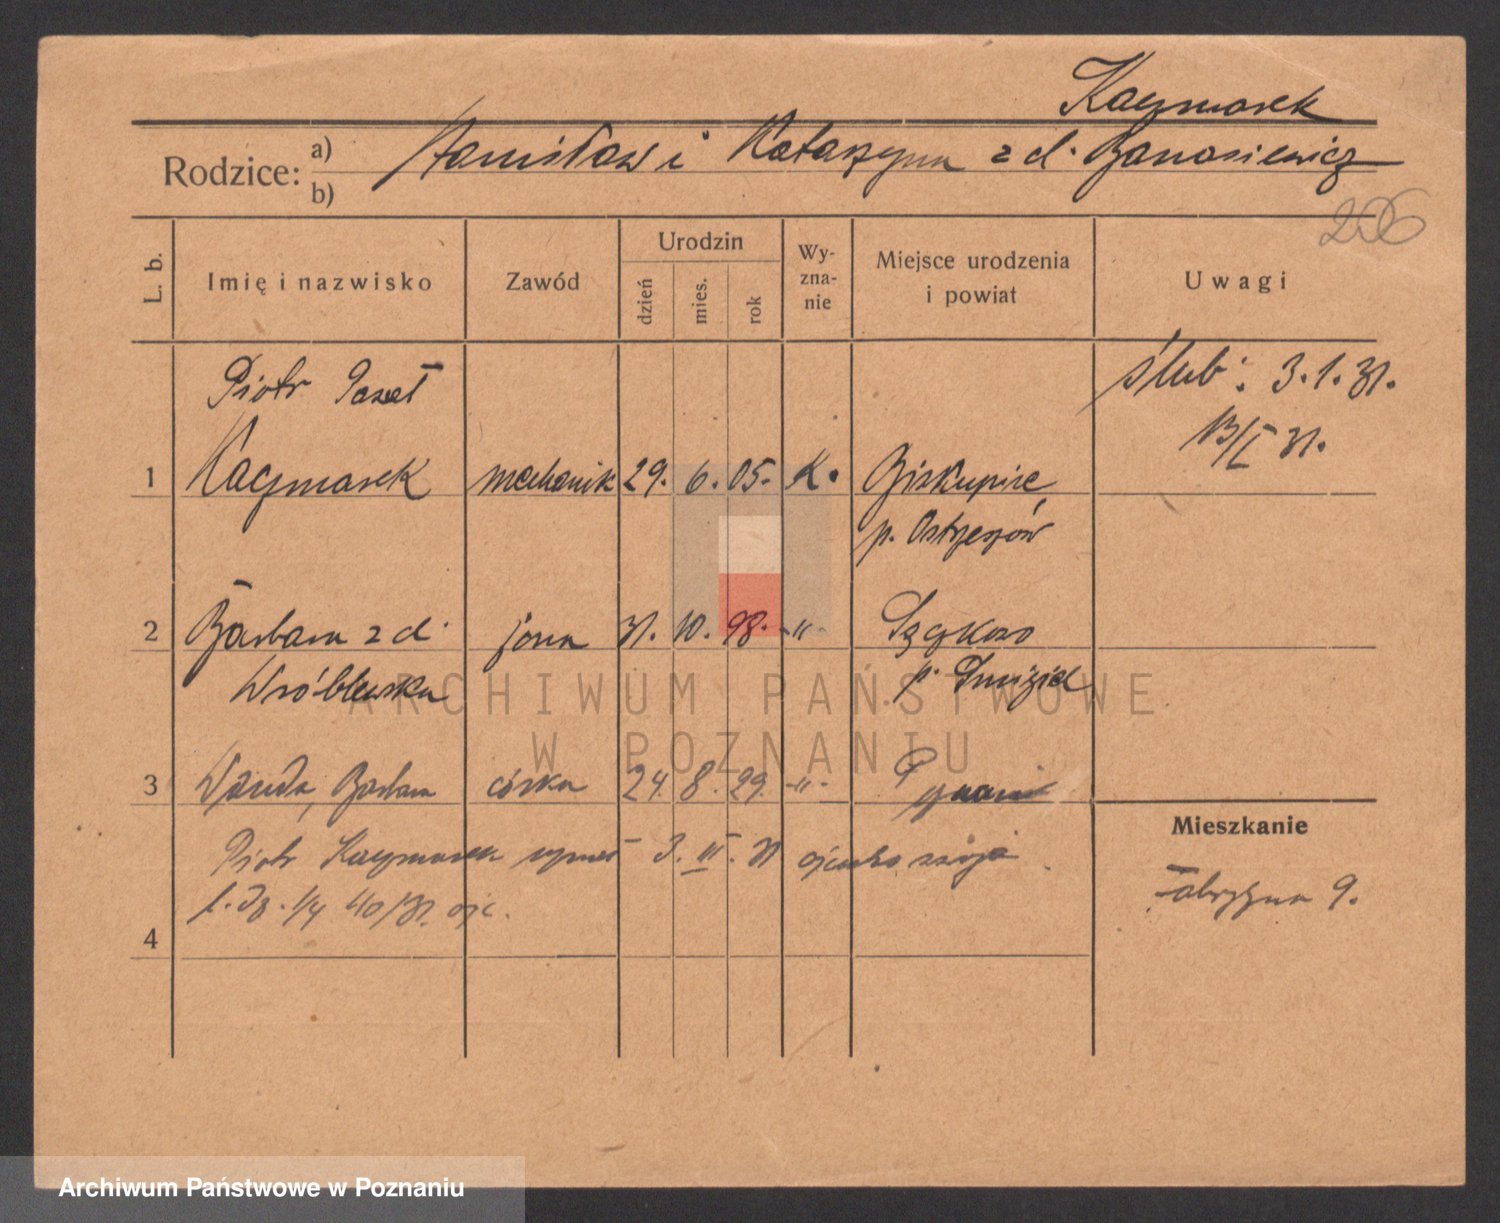 Kaczmarek
Rodzice: a) b) Stanisław i Katarzyna z d. Banasiewicz
206
L. b.
Imię i nazwisko
Zawód
Urodzin
dzień
mies.
rok
Wy-
zna-
nie
Miejsce urodzenia
i powiat
Uwagi
Piotr Paweł
ślub: 3.1.31.
13/I 31.
1 Kaczmarek mechanik 29. 6. 05. K. Biskupice
p. Ostrzeszów
2 Barbara z d. żona 31. 10. 98. -"-
Wróblewska p.
3 Wanda, Barbara córka 24. 8. 29. -"- Poznań
Mieszkanie
Piotr Kaczmarek 3. III. 31
Fabryczna 9.
40/31.
4
ARCHIWUM PAŃSTWOWE
W POZNANIU
Archiwum Państwowe w Poznaniu